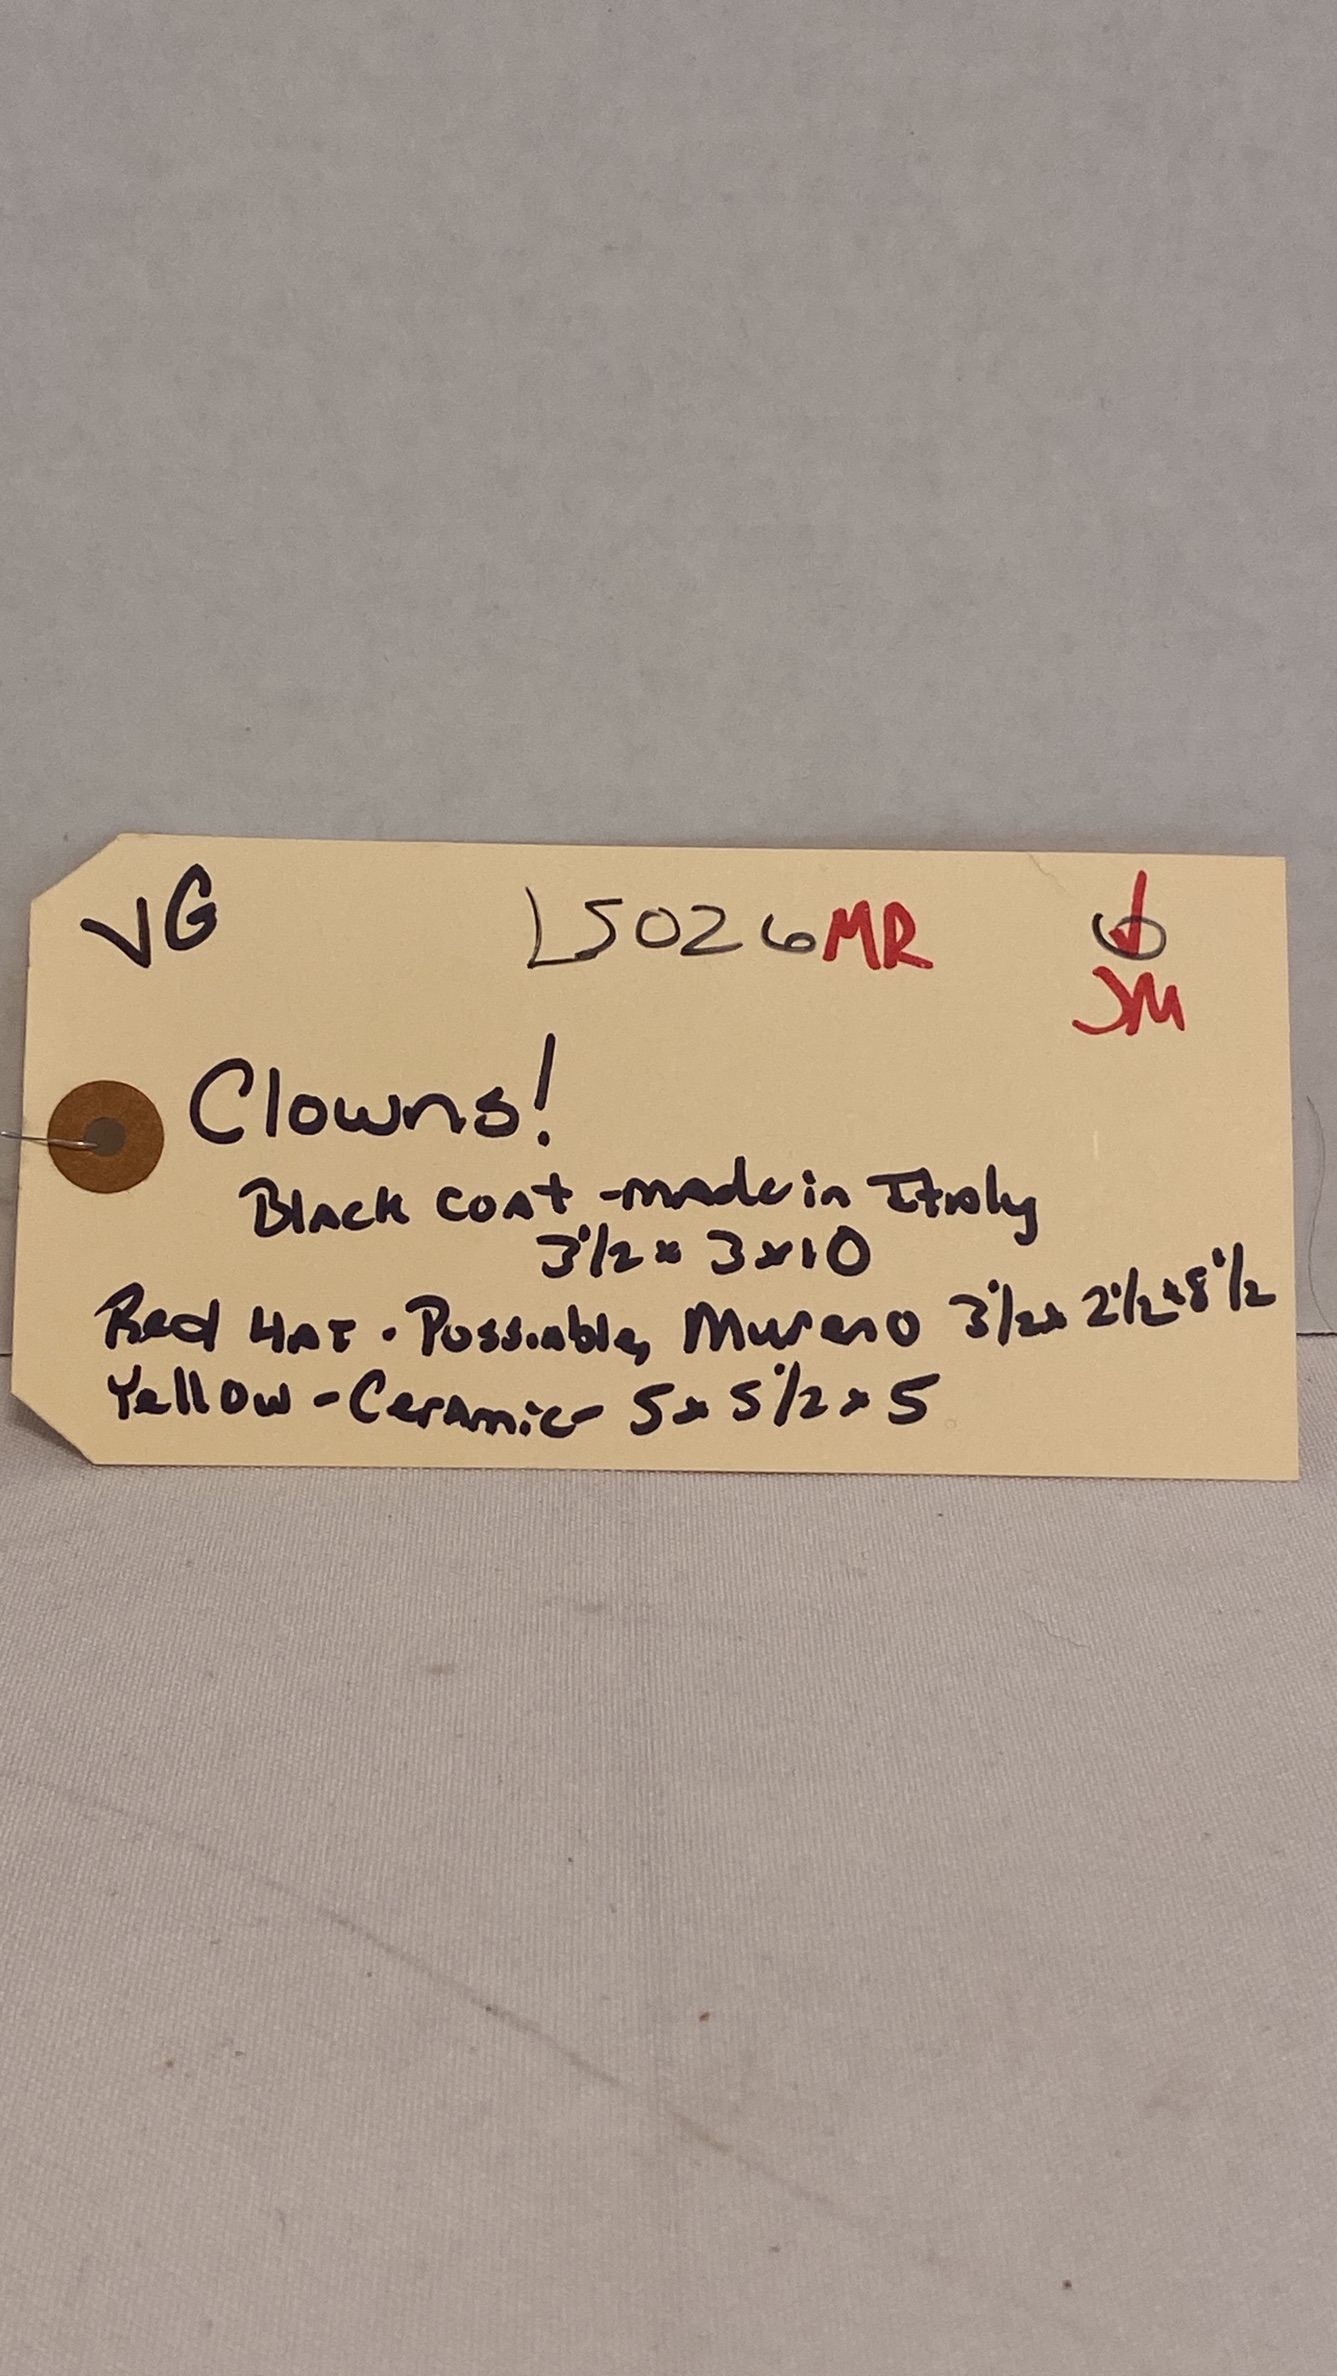 VG L5026MR
JM
Clowns!
Black coat - made in Italy
3 1/2 x 3 x 10
Red Hat - Possiable, Mureno 3 1/2 x 2 1/2 x 8 1/2
Yellow - Ceramic - 5 x 5 1/2 x 5